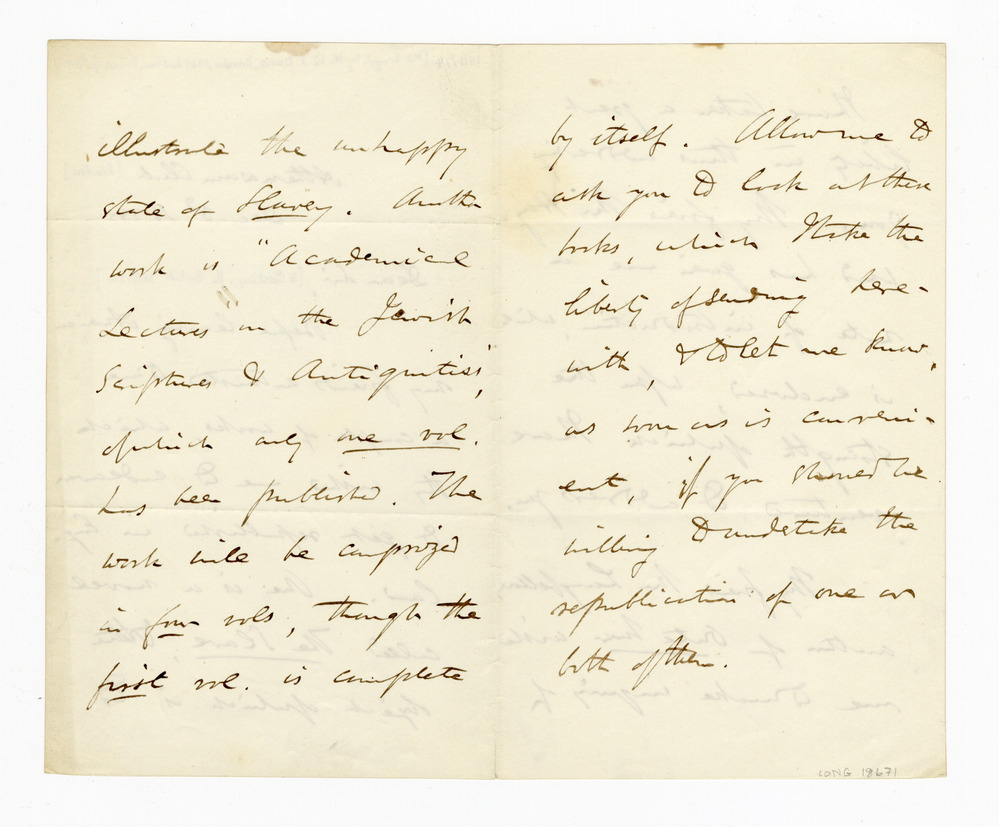 illustrate the unhappy
state of Slavery. Another
work is "Academical
Lectures" on the Jewish
Scriptures & Antiquities',
of which only one vol.
has been published. The
work will be comprized
in four vols, though the
first vol. is complete
by itself. Allow me to
ask you to look at these
books, which I take the
liberty of sending here-
with, & to let me know,
as soon as is conveni-
ent, if you should be
willing to undertake the
republication of one or
both of them.
LONG 19671